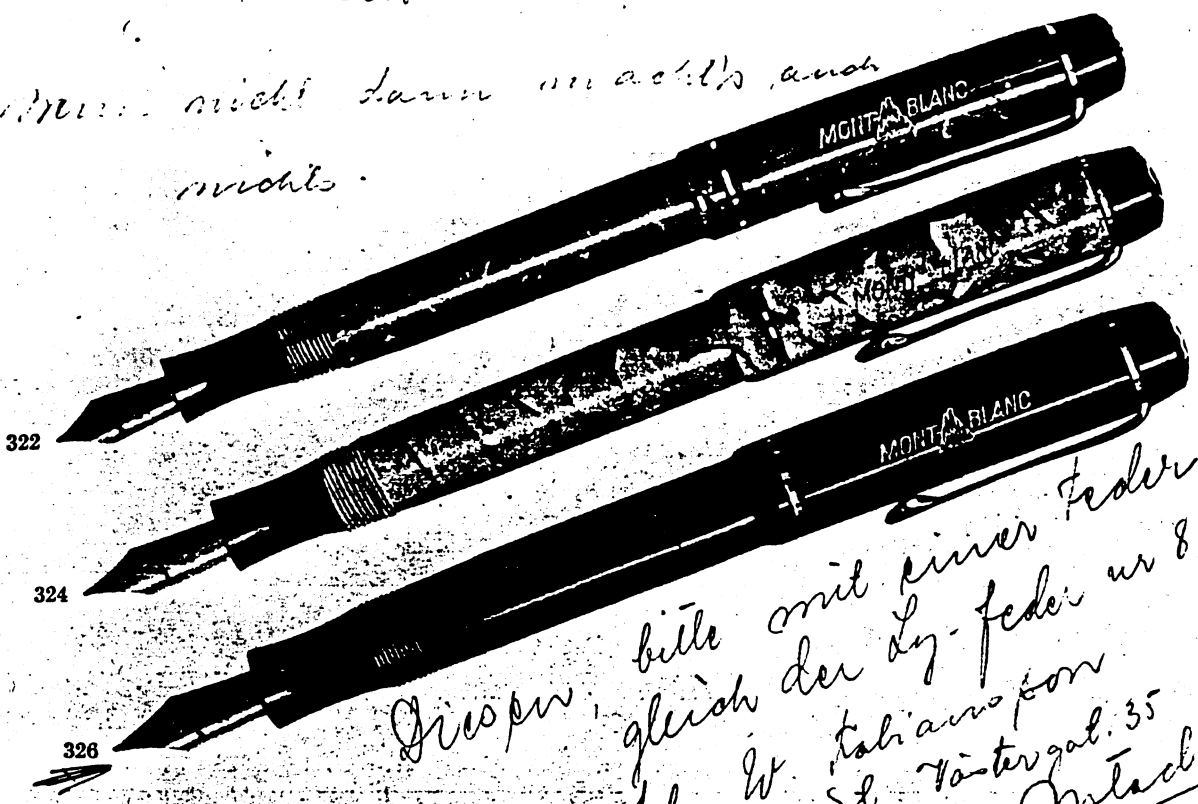 nicht dann macht's auch
nichts.
MONT BLANC
MONT BLANC
MONT BLANC
322
324
326
Diesen, bitte mit einer Feder
gleich der Ly-feder nr 8
W. Fabiansson
St. Västergat. 35